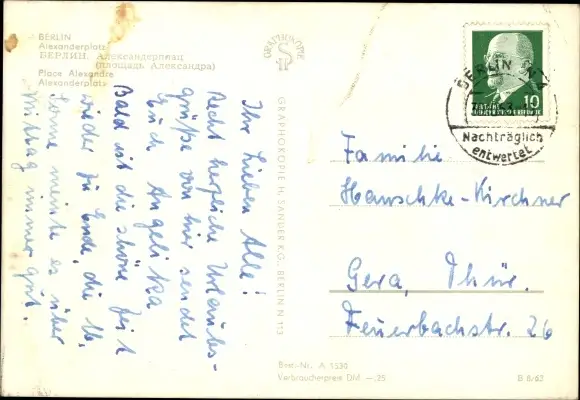 BERLIN
Alexanderplatz
БЕРЛИН. Александерплац
(площадь Александра)
Place Alexandre
Alexanderplatz
GRAPHOKOPIE
GRAPHOKOPIE H. SANDER K.G., BERLIN N 113
Ihr lieben Alle!
Recht herzliche Urlaubs-
grüße von hier sendet
Euch Angelika
Bald ist die schöne Zeit
wieder zu Ende, die
Sonne meinte es über
Mittag immer gut.
BERLIN N 4
10
Nachträglich
entwertet
Familie
Hauschke-Kirchner
Gera, Thür.
Feuerbachstr. 26
Best.-Nr. A 1530
Verbraucherpreis DM —.25
B 8/63